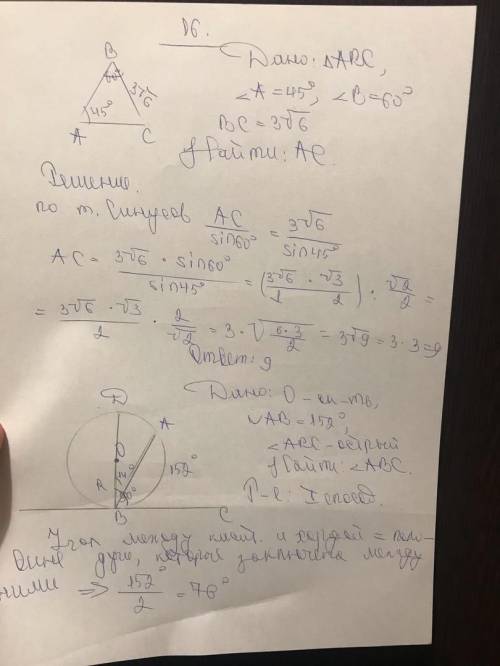 Дано: ΔABC,
∠A = 45°, ∠B = 60°
BC = 3√6
Найти: AC.
B
60°
3√6
45°
A
C
Решение.
по т. Синусов AC/sin60° = 3√6/sin45°
AC = 3√6 · sin60°/sin45° = (3√6/1 · √3/2) : √2/2 =
= 3√6 · √3/2 · 2/√2 = 3 · √(6·3/2) = 3√9 = 3·3=9
Ответ: 9
Дано: O
∪AB = 152°,
∠ABC - острый
Найти: ∠ABC.
Р-е: I способ.
D
A
O
14°
R
152°
90°
B
C
Угол между касат. и хордой = поло-
вине дуги, которая заключена между
ними => 152°/2 = 76°